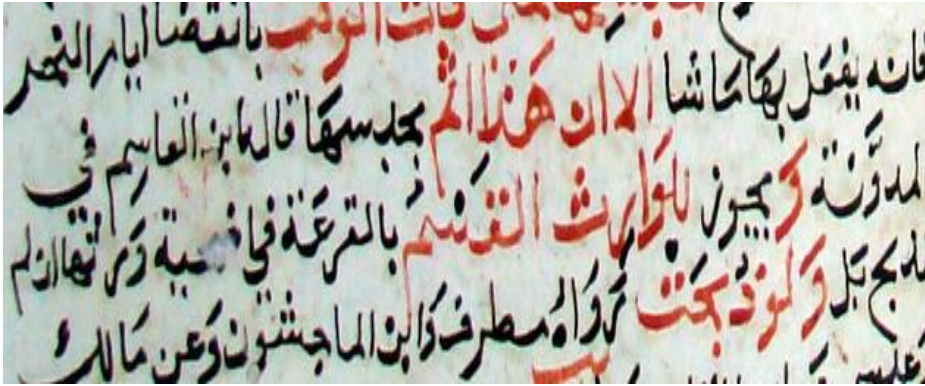 ذلك الوقت بانقضا ايام النحر
فانه يفعل بها ما شا الا ان هذا اثم بحبسها قاله ابن القاسم في
المدونة و يجوز للوارث القسم بالقرعة في ورثها ان لم
تذبح بل ولو ذبحت رواه مطرف وابن الماجشون وعن مالك